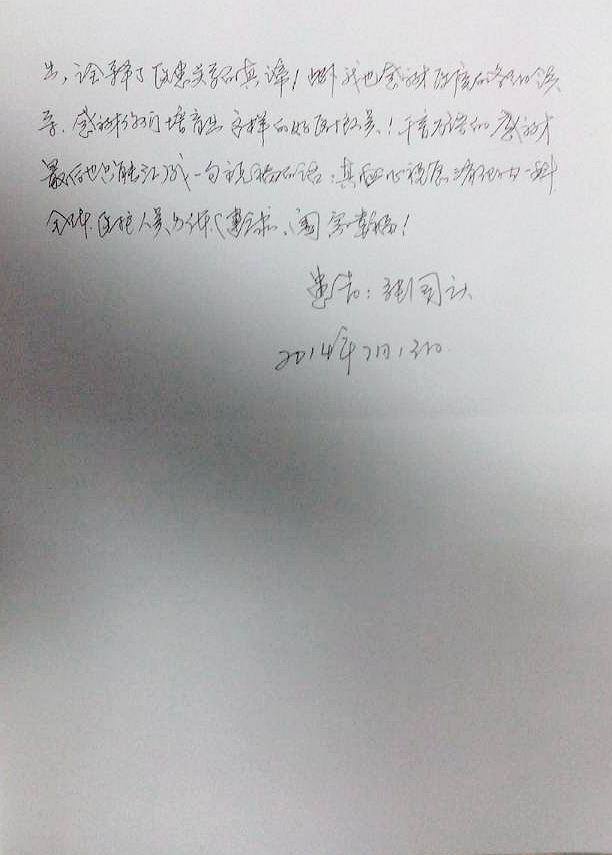 出,诠释了医患关系的真谛!此外我也感谢医院的各级领
导,感谢你们培育出这样的好医护人员!千言万语的感谢
最后也只能汇成一句祝福的话:真心祝愿病区内一科
全体医护人员身体健康、阖家幸福!
患者:张国
2014年7月13日